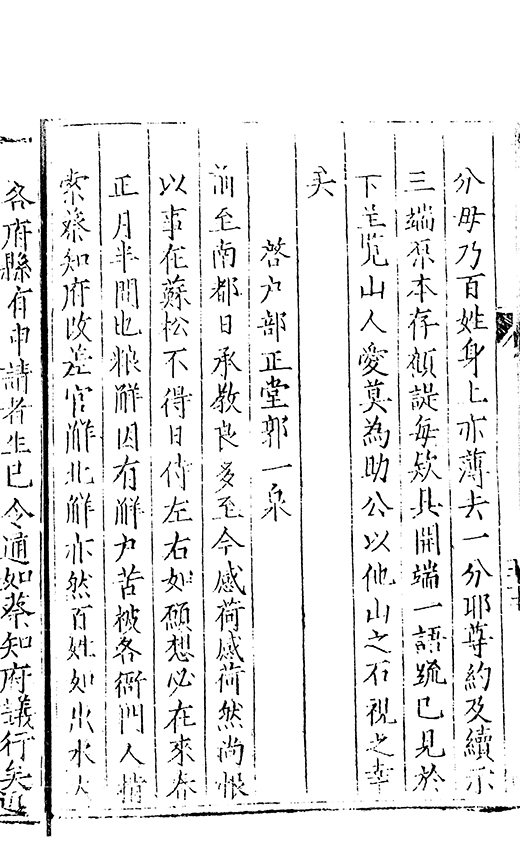 分毋乃百姓身上亦薄去一分耶尊約及續示
三端原本存領謹每欵具開端一語䟽已見於
下呈覧山人愛莫為助公以他山之石視之幸
矣
啓户部正堂郭一泉
前至南都日承教良多至今感荷感荷然尚恨
以事在蘇松不得日侍左右如願想必在來春
正月半間也粮觧因有觧户苦被各衙門人掯
索蔡知府改差官觧北觧亦然百姓如出水火
各府縣有申請者生已令通如蔡知府議行矣